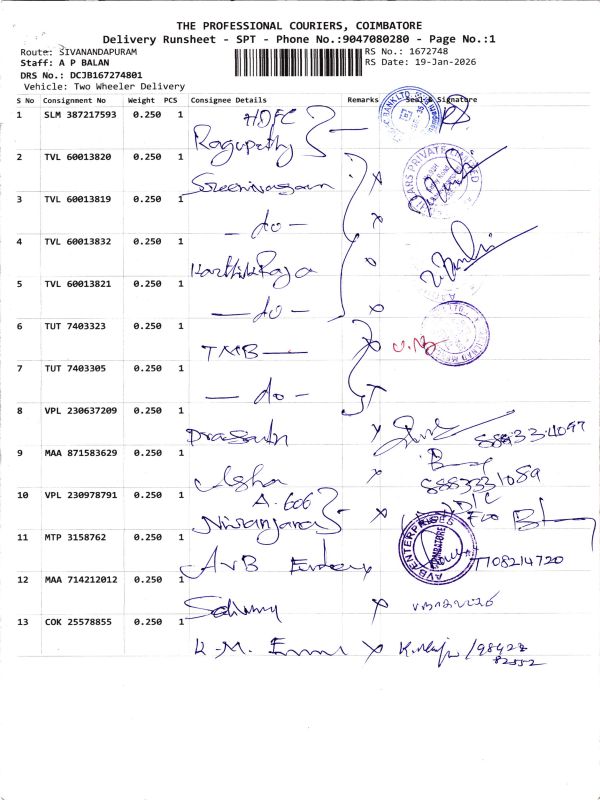 THE PROFESSIONAL COURIERS, COIMBATORE
Delivery Runsheet - SPT - Phone No.:9047080280 - Page No.:1
Route: SIVANANDAPURAM
RS No.: 1672748
Staff: A P BALAN
RS Date: 19-Jan-2026
DRS No.: DCJB167274801
Vehicle: Two Wheeler Delivery
S No Consignment No Weight PCS Consignee Details Remarks Seal & Signature
1 SLM 387217593 0.250 1 HDFC
Ragupathy
2 TVL 60013820 0.250 1
Sreenivasan x
3 TVL 60013819 0.250 1
- do - x
4 TVL 60013832 0.250 1
Karthik Raja
5 TVL 60013821 0.250 1
- do - x
6 TUT 7403323 0.250 1
TMB - x
7 TUT 7403305 0.250 1
- do -
8 VPL 230637209 0.250 1
Prasanth x
9 MAA 871583629 0.250 1
Asha x 8883331089
10 VPL 230978791 0.250 1 A. 606
Niranjana x
11 MTP 3158762 0.250 1 AVB ENTERPRISES COIMBATORE
AVB
12 MAA 714212012 0.250 1
x
13 COK 25578855 0.250 1
K. M. x